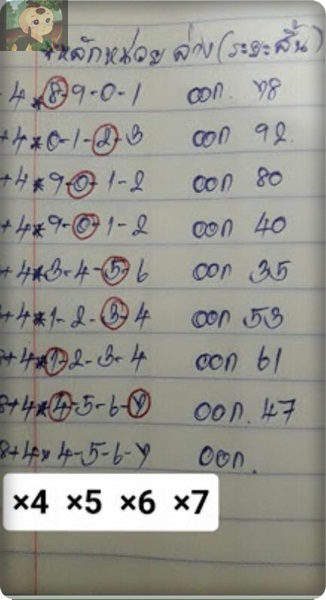 *หลักหน่วย ล่าง (ระยะสั้น)
4*8-9-0-1 ออก. 78
+4*0-1-2-3 ออก 92.
+4*9-0-1-2 ออก 80
+4*9-0-1-2 ออก 40
+4*3-4-5-6 ออก 35
+4*1-2-3-4 ออก 53
8+4*1-2-3-4 ออก 61
8+4*4-5-6-7 ออก. 47
8+4*4-5-6-7 ออก.
×4 ×5 ×6 ×7